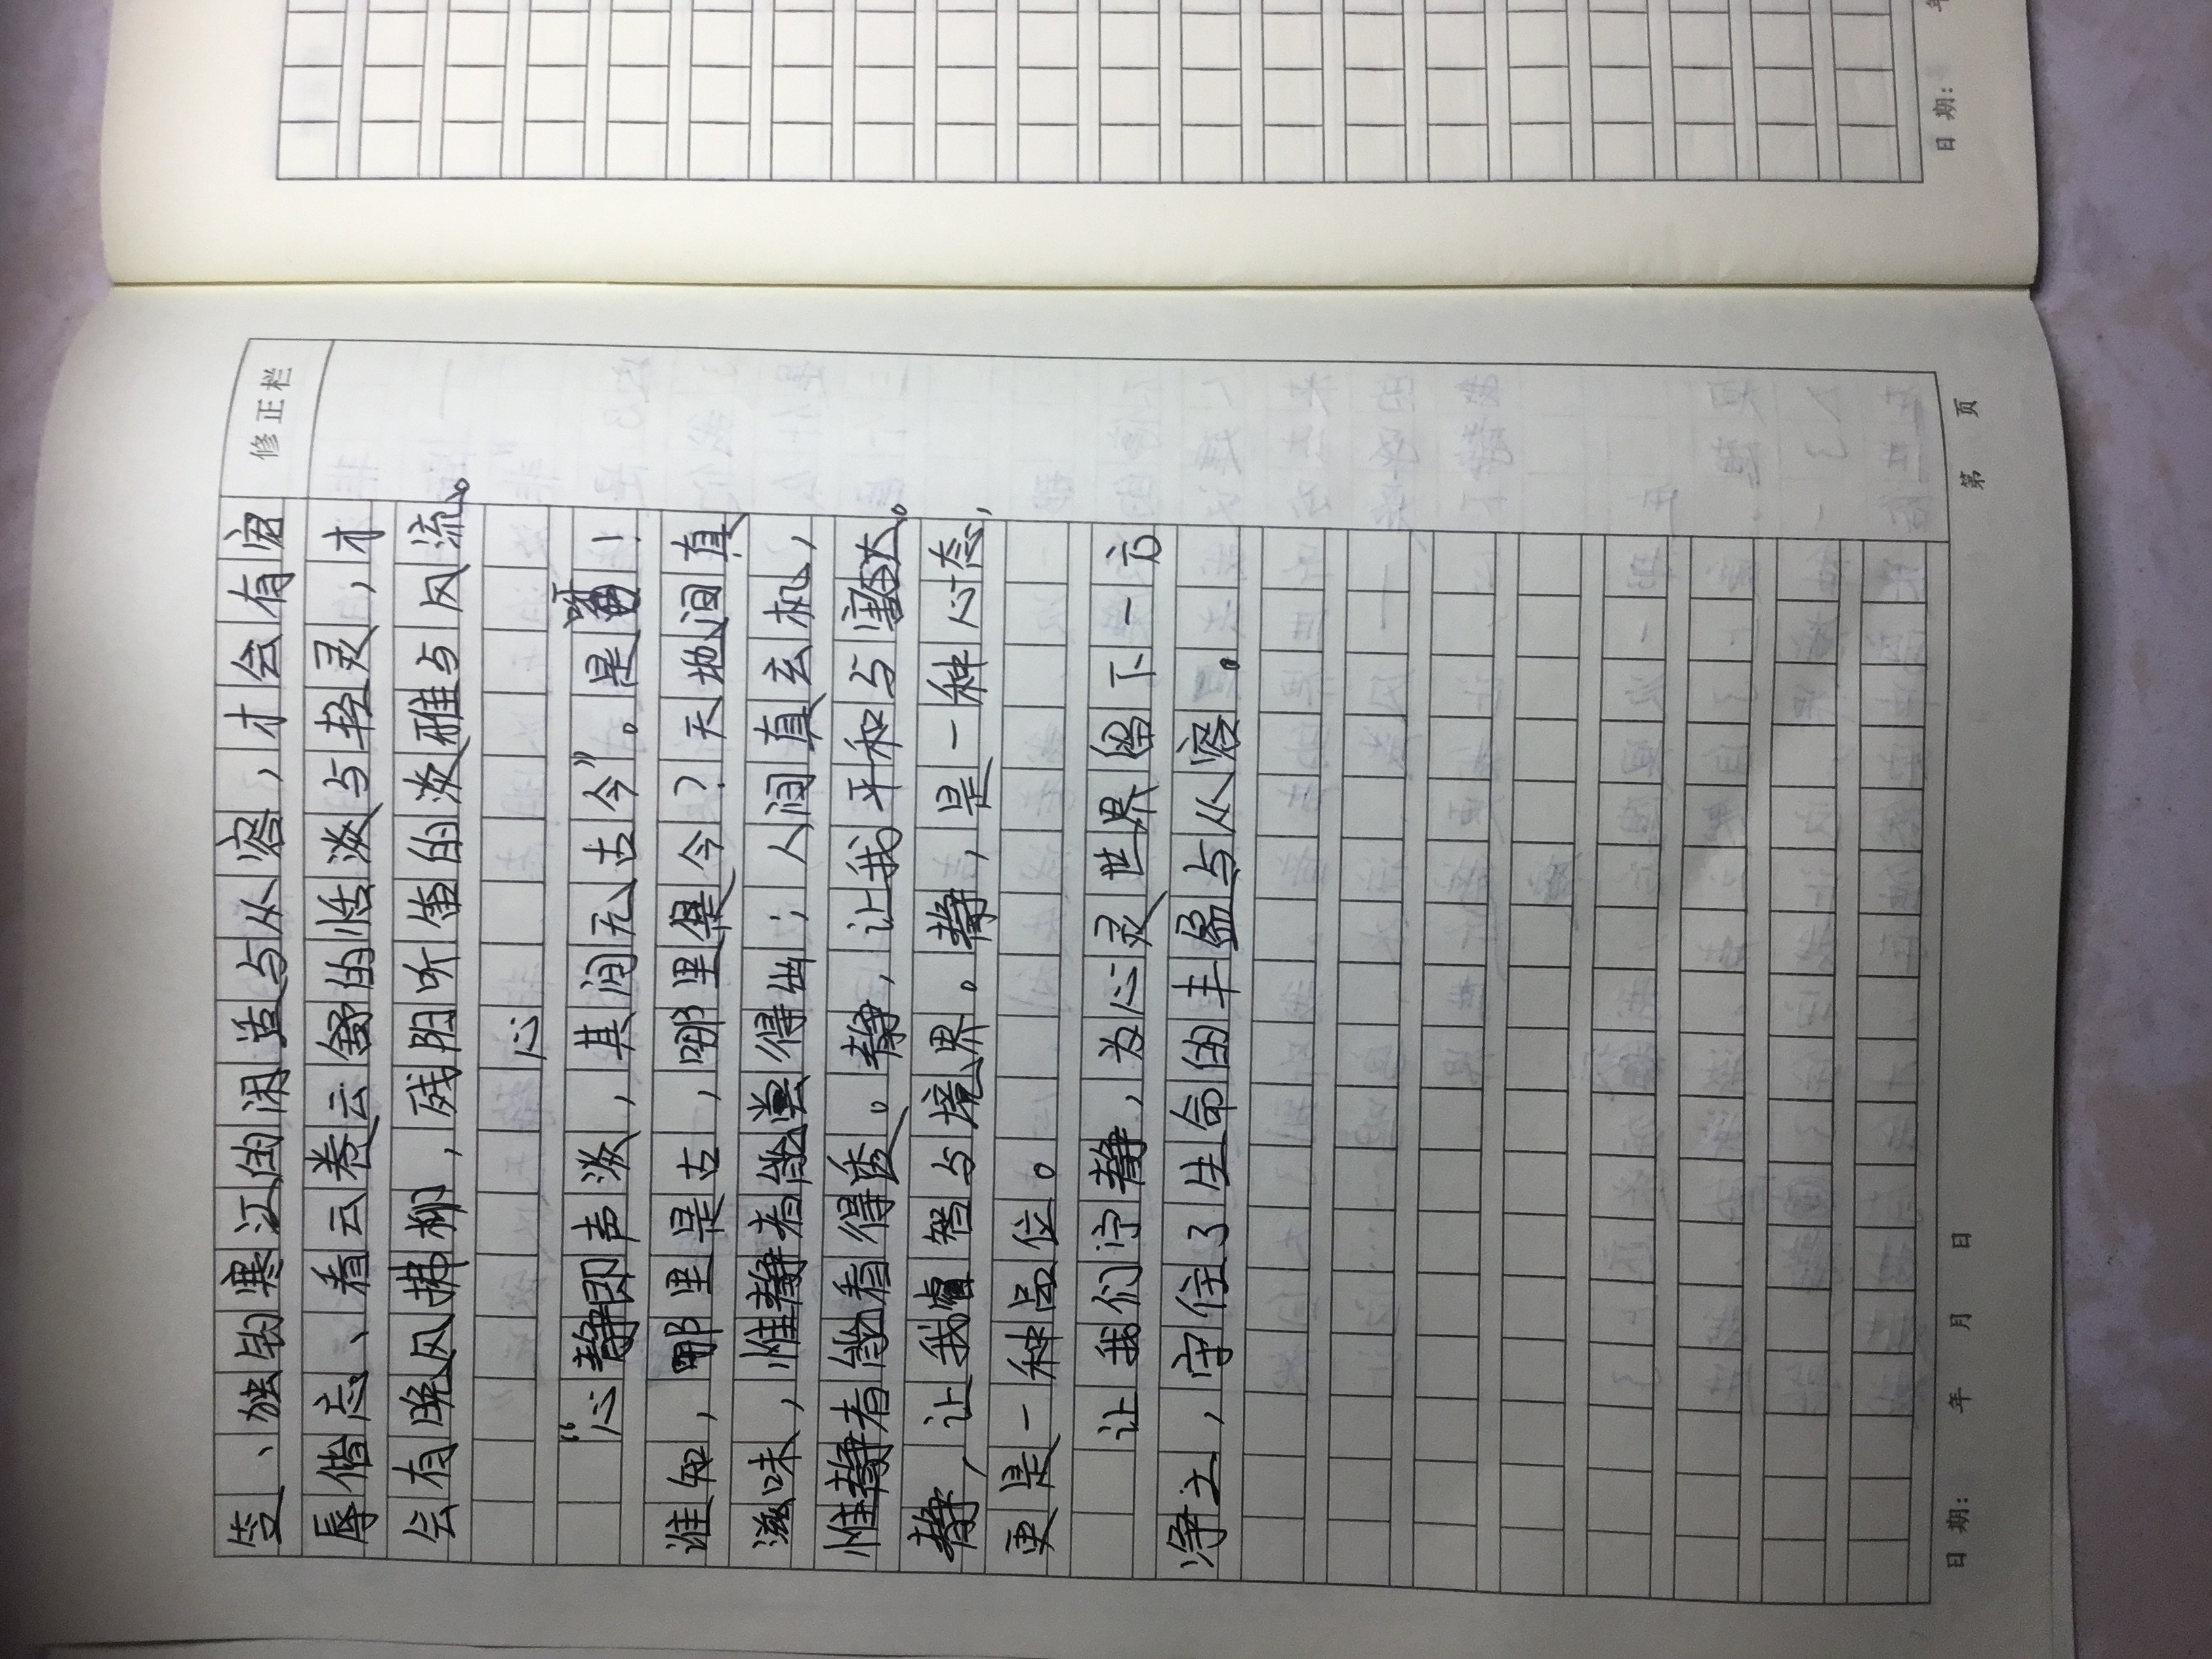 修正栏
笠、独钓寒江的闲适与从容，才会有宠
辱偕忘、看云卷云舒的恬淡与轻灵，才
会有晚风拂柳，残阳听笛的淡雅与风流。
心
“心静即声淡，其间无古今”。是啊！
谁知，哪里是古，哪里是今？天地间真
滋味，惟静者能尝得出；人间真玄机，
惟静者能看得透。静，让我平和与豁达。
静，让我睿智与境界。静，是一种心态，
更是一种品位。
让我们泞静，为心灵世界留下一方
净土，守住了生命的丰盈与从容。
日期： 年 月 日 第 页
日期： 年